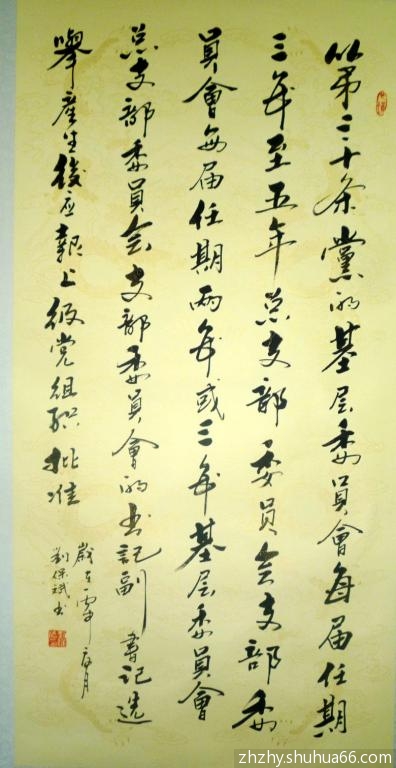 以第三十条黨的基层委員會每届任期
三年至五年总支部委員会支部委
員會每届任期两年或三年基层委員會
总支部委員会支部委員會的书記副書记选
舉產生後应報上级党组织批准
歲在 月
劉保斌书
zhzhy.shuhua66.com